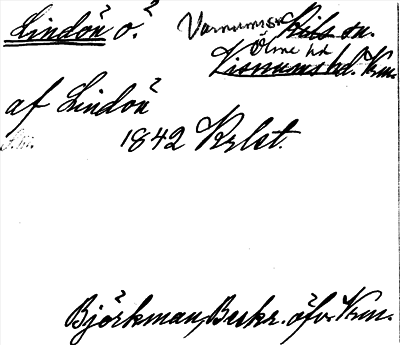 Lindön ö.
Varnumssn Kils sn.
Ölme hd
Visnums hd. Vrm.
af Lindön
1842 Krlst.
Björkman, Beskr. öfv. Vrm.